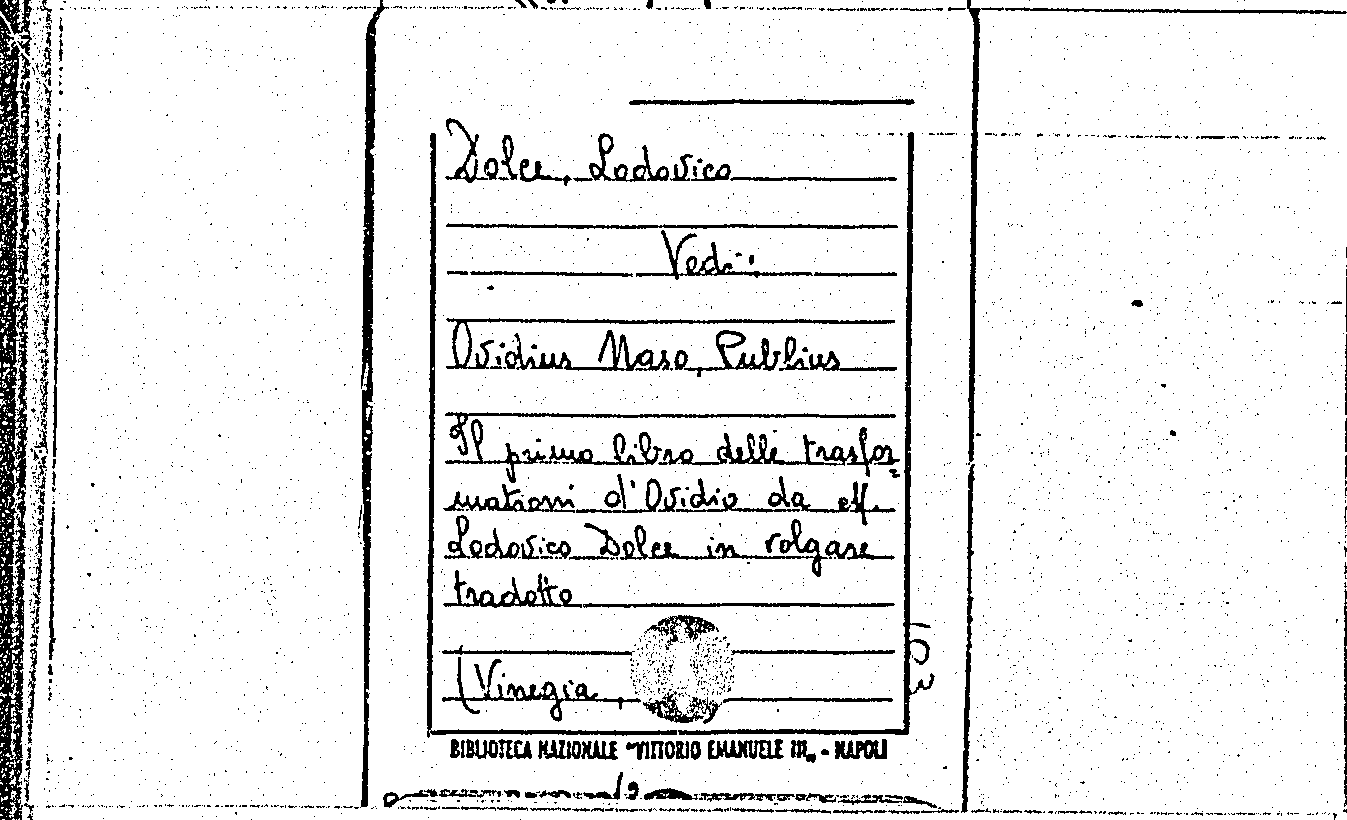 Dolce, Lodovico
Vedi:
Ovidius Naso, Publius
Il primo libro delle trasfor=
mationi d'Ovidio da M.
Lodovico Dolce in volgare
tradotto
(Vinegia,
BIBLIOTECA NAZIONALE "VITTORIO EMANUELE III„ - NAPOLI